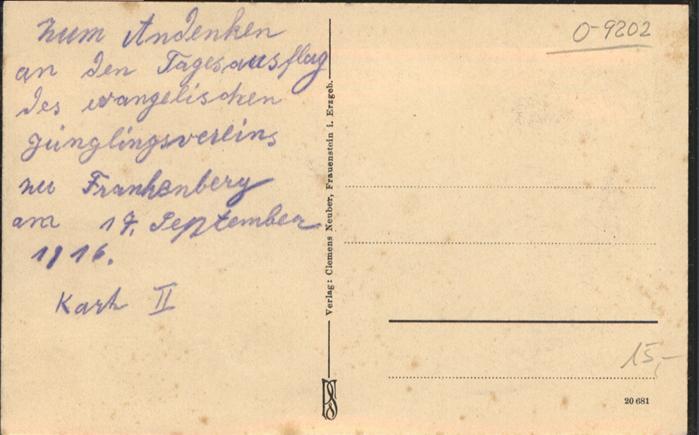 Zum Andenken
an den Tagesausflug
des evangelischen
Jünglingsvereins
zu Frankenberg
am 17. September
1916.
Karte II
Verlag: Clemens Neuber, Frauenstein i. Erzgeb.
O-9202
15,-
20 681